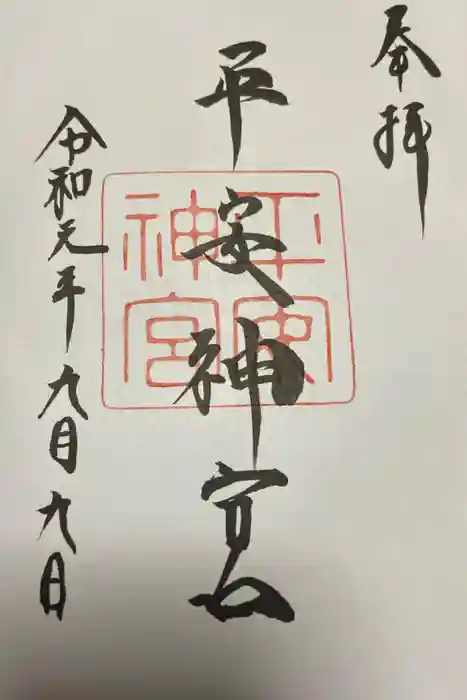 奉拝
平安神宮
平安
神宮
令和元年九月九日